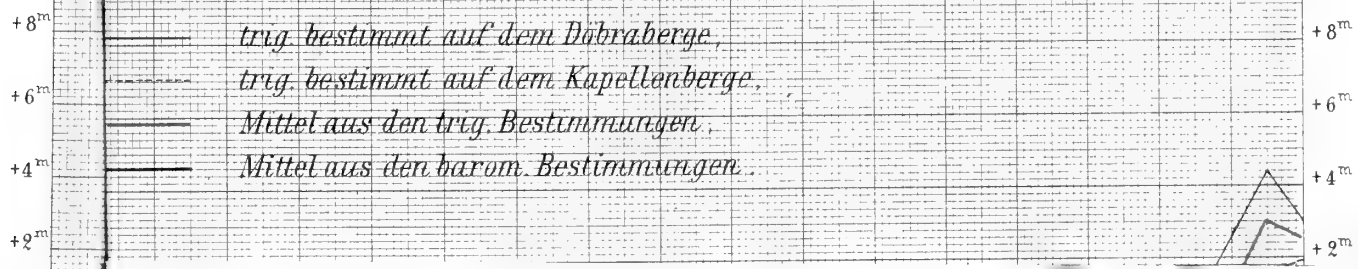 +8ᵐ trig. bestimmt auf dem Döbraberge, +8ᵐ
trig. bestimmt auf dem Kapellenberge,
+6ᵐ +6ᵐ
Mittel aus den trig. Bestimmungen,
+4ᵐ Mittel aus den barom. Bestimmungen. +4ᵐ
+2ᵐ +2ᵐ